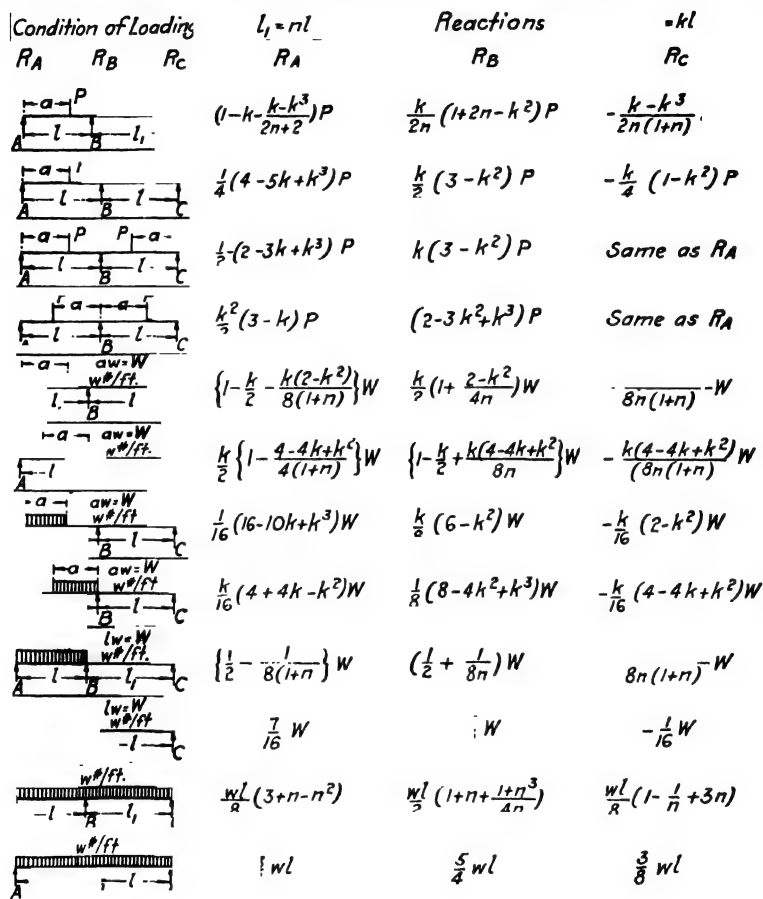 Condition of Loading l₁ = nl Reactions = kl
R_A R_B R_C R_A R_B R_C
a P
A l B l₁
(1-k-\frac{k-k^3}{2n+2})P \frac{k}{2n}(1+2n-k^2)P -\frac{k-k^3}{2n(1+n)}
a
A l B l C
\frac{1}{4}(4-5k+k^3)P \frac{k}{2}(3-k^2)P -\frac{k}{4}(1-k^2)P
a P P a
A l B l C
(2-3k+k^3)P k(3-k^2)P Same as R_A
a a
l B l C
\frac{k^2}{2}(3-k)P (2-3k^2+k^3)P Same as R_A
a aw=W
w#/ft.
l B l
{1-\frac{k}{2}-\frac{k(2-k^2)}{8(1+n)}}W \frac{k}{2}(1+\frac{2-k^2}{4n})W \frac{}{8n(1+n)}-W
a aw=W
w#/ft.
A l
\frac{k}{2}{1-\frac{4-4k+k^2}{4(1+n)}}W {1-\frac{k}{2}+\frac{k(4-4k+k^2}{8n}}W -\frac{k(4-4k+k^2)}{(8n(1+n)}W
a aw=W
w#/ft
B l C
\frac{1}{16}(16-10k+k^3)W (6-k^2)W -\frac{k}{16}(2-k^2)W
a aw=W
w#/ft
B l C
\frac{k}{16}(4+4k-k^2)W \frac{1}{8}(8-4k^2+k^3)W -\frac{k}{16}(4-4k+k^2)W
lw=W
w#/ft.
A l B l₁ C
{\frac{1}{2}-\frac{1}{8(1+n)}}W (\frac{1}{2}+\frac{1}{8n})W 8n(1+n)-W
lw=W
w#/ft
-l C
\frac{7}{16}W W -\frac{1}{16}W
w#/ft.
-l B l₁
\frac{wl}{8}(3+n-n^2) \frac{wl}{2}(1+n+\frac{1+n^3}{4n}) \frac{wl}{8}(1-\frac{1}{n}+3n)
w#/ft
A l
wl \frac{5}{4}wl \frac{3}{8}wl